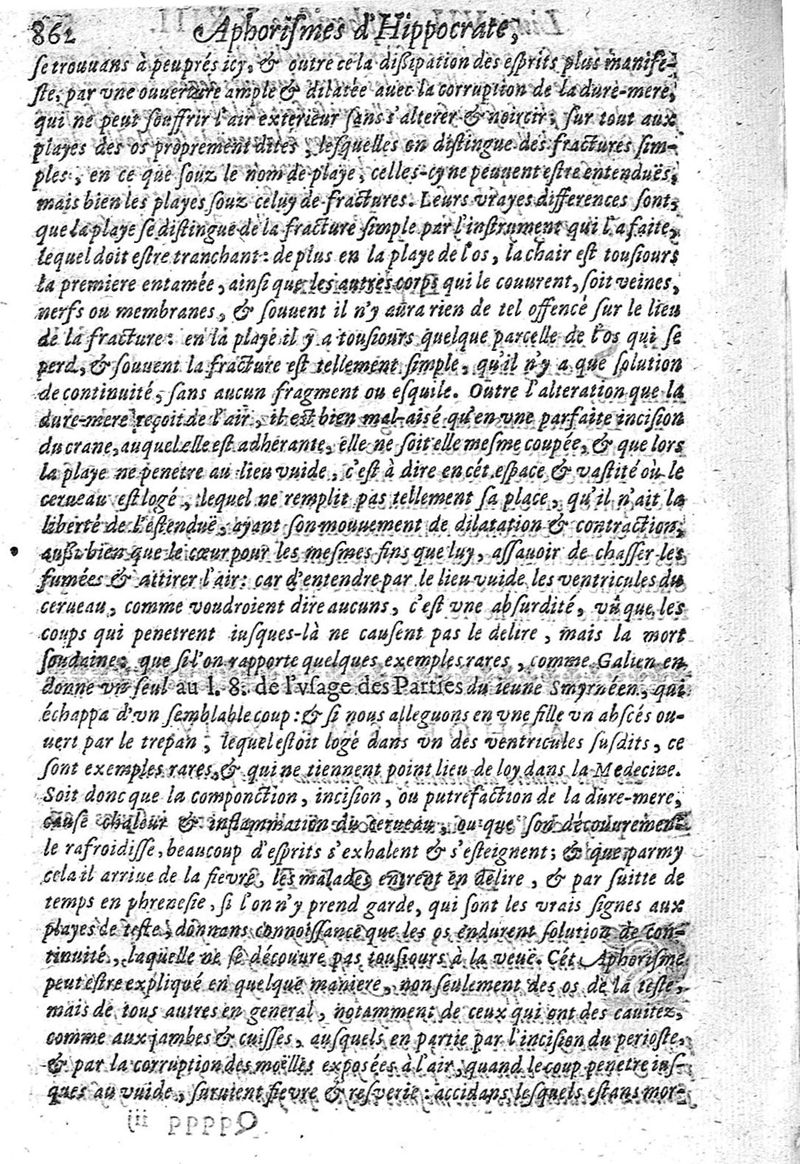 862 Aphorismes d'Hippocrate,
se trouuans à peuprés icy, & outre cela dissipation des esprits plus manife-
ste, par vne ouuerture ample & dilatée auec la corruption de la dure-mere,
qui ne peut souffrir l'air exterieur sans s'alterer & noircir; sur tout aux
playes des os proprement dites, lesquelles on distingue des fractures sim-
ples, en ce que souz le nom de playe, celles-cy ne peuuent estre entenduës,
mais bien les playes souz celuy de fractures. Leurs vrayes differences sont,
que la playe se distingue de la fracture simple par l'instrument qui l'a faite,
lequel doit estre tranchant: de plus en la playe de l'os, la chair est tousiours
la premiere entamée, ainsi que les autres corps qui le couurent, soit veines,
nerfs ou membranes, & souuent il n'y aura rien de tel offencé sur le lieu
de la fracture: en la playe il y a tousiours quelque parcelle de l'os qui se
perd, & souuent la fracture est tellement simple, qu'il n'y a que solution
de continuité, sans aucun fragment ou esquile. Outre l'alteration que la
dure-mere reçoit de l'air, il est bien mal-aisé qu'en vne parfaite incision
du crane, auquel elle est adhérante, elle ne soit elle mesme coupée, & que lors
la playe ne penetre au lieu vuide, c'est à dire en cét espace & vastité où le
cerueau est logé, lequel ne remplit pas tellement sa place, qu'il n'ait la
liberté de l'estenduë, ayant son mouuement de dilatation & contraction,
aussi bien que le cœur pour les mesmes fins que luy, assauoir de chasser les
fumées & attirer l'air: car d'entendre par le lieu vuide les ventricules du
cerueau, comme voudroient dire aucuns, c'est vne absurdité, vû que les
coups qui penetrent iusques-là ne causent pas le delire, mais la mort
soudaine; que si l'on rapporte quelques exemples rares, comme Galien en
donne vn seul au l. 8. de l'vsage des Parties du ieune Smyrnéen, qui
échappa d'vn semblable coup: & si nous alleguons en vne fille vn abscés ou-
uert par le trepan, lequel estoit logé dans vn des ventricules susdits, ce
sont exemples rares, & qui ne tiennent point lieu de loy dans la Medecine.
Soit donc que la componction, incision, ou putrefaction de la dure-mere,
cause chaleur & inflammation du cerueau, ou que son découurement
le rafroidisse, beaucoup d'esprits s'exhalent & s'esteignent; & que parmy
cela il arriue de la fievre, les malades entrent en delire, & par suitte de
temps en phrenesie, si l'on n'y prend garde, qui sont les vrais signes aux
playes de teste, donnans connoissance que les os endurent solution de con-
tinuité, laquelle ne se découure pas tousiours à la veuë. Cét Aphorisme
peut estre expliqué en quelque maniere, non seulement des os de la teste,
mais de tous autres en general, notamment de ceux qui ont des cauitez,
comme aux jambes & cuisses, ausquels en partie par l'incision du perioste,
& par la corruption des moëlles exposées à l'air, quand le coup penetre ius-
ques au vuide, suruient fievre & resverie: accidans lesquels estans mor-